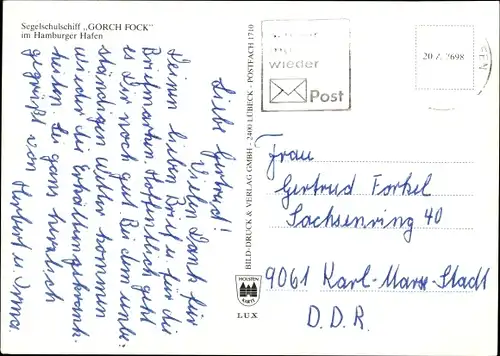 Segelschulschiff „GORCH FOCK"
im Hamburger Hafen
Liebe Gertrud!
Vielen Dank für
Deinen lieben Brief u. für die
Briefmarken. Hoffentlich geht
es Dir noch gut. Bei dem unbe-
ständigen Wetter kommen
wieder die Erkältungskrank-
heiten. Sei ganz herzlich
gegrüßt von Herbert u. Irma.
BILD-DRUCK & VERLAG GMBH · 2400 LÜBECK · POSTFACH 1710
HOLSTEN
KARTE
LUX
mal
wieder
Post
20 Z 7698
EN
Frau
Gertrud Forkel
Sachsenring 40
9061 Karl-Marx-Stadt
D.D.R.